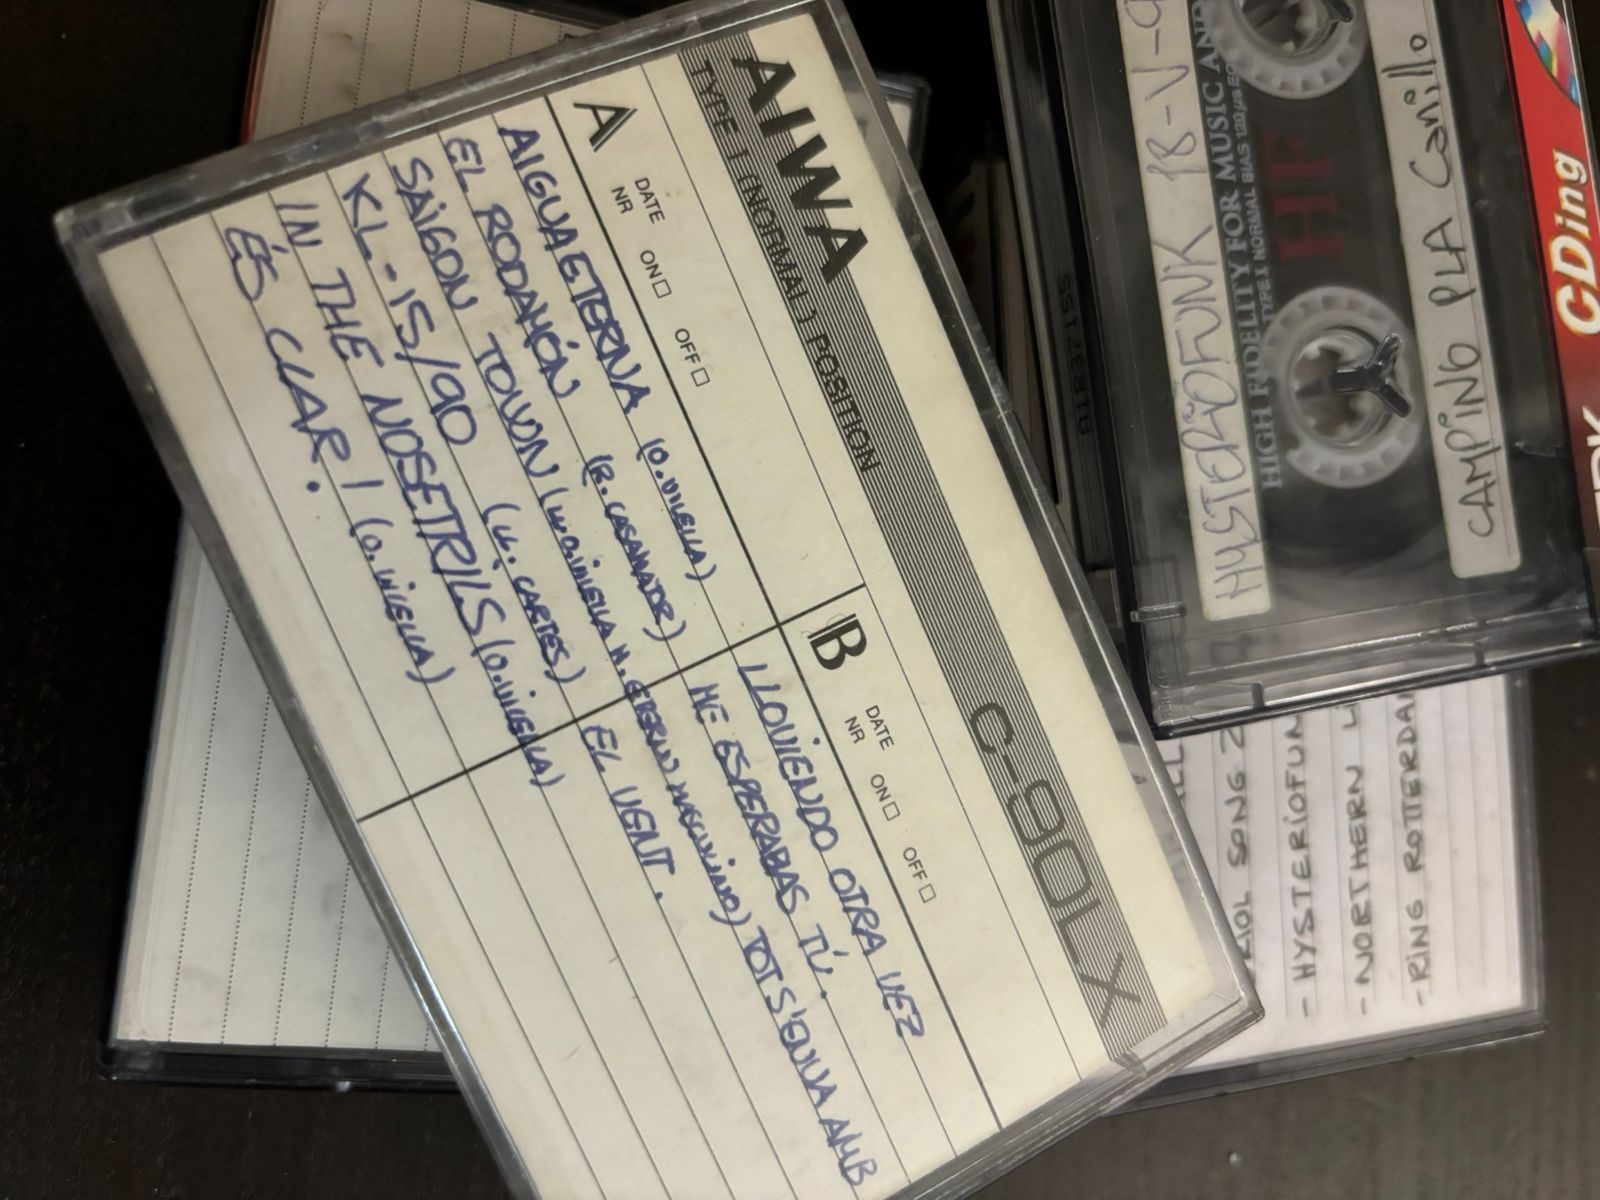 AIWA
TYPE I (NORMAL) POSITION
C-90LX
A
DATE
NR
ON
OFF
AIGUA ETERNA (O. VILELLA)
EL RODAMÓN (R. CASAMAJOR)
SAIGON TOWN (W.O. VILELLA M. ETERNO MASCULINO)
KL-15/90 (LL. CARTES)
IN THE NOSETRILS (O. VILELLA)
ÉS CLAR! (O. VILELLA)
B
DATE
NR
ON
OFF
LLOVIENDO OTRA VEZ
ME ESPERABAS TÚ.
TOT S'ENVA AMB
EL VENT.
HYSTERIOFUNK 18-V-9
HIGH FIDELITY FOR MUSIC AND
TYPE I NORMAL BIAS 120 µs EQ
HF
CAMPING PLA Canillo
CDing
SONG 2
- HYSTERIOFUN
- NORTHERN L
- RING ROTTERDA